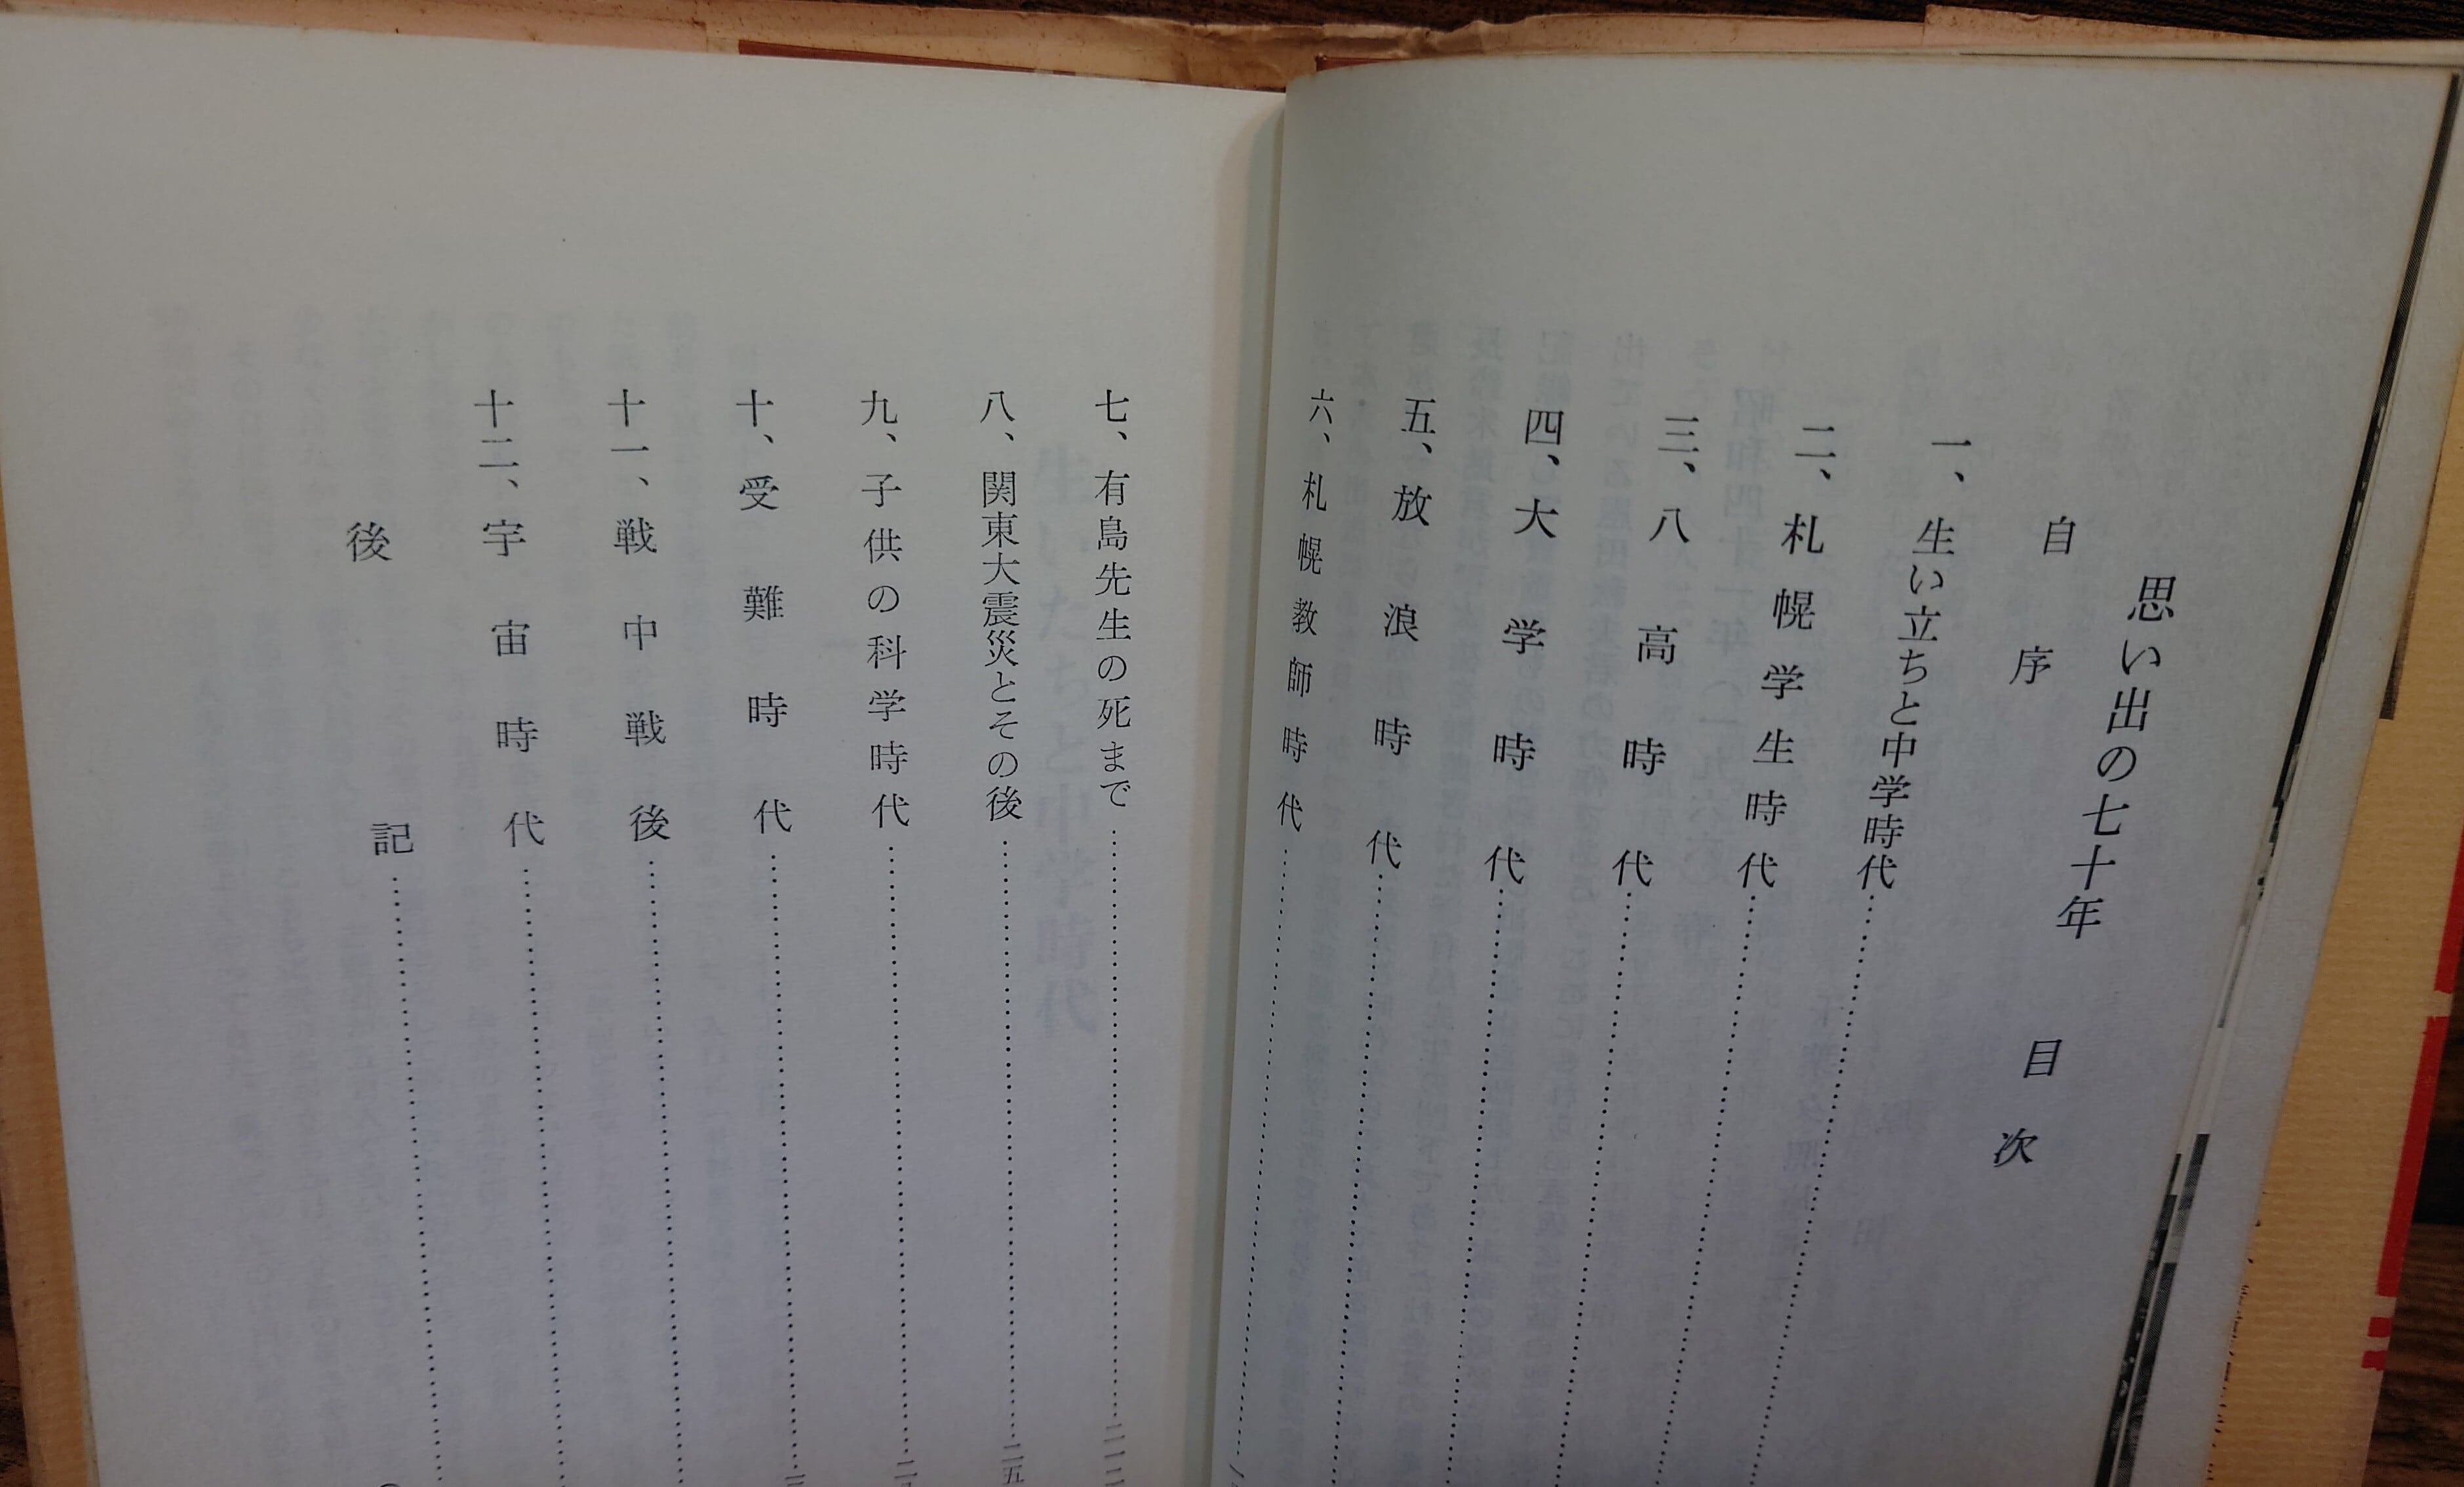 思い出の七十年 目次
自序
一、生い立ちと中学時代
二、札幌学生時代
三、八高時代
四、大学時代
五、放浪時代
六、札幌教師時代
七、有島先生の死まで
八、関東大震災とその後
九、子供の科学時代
十、受難時代
十一、戦中戦後
十二、宇宙時代
後記